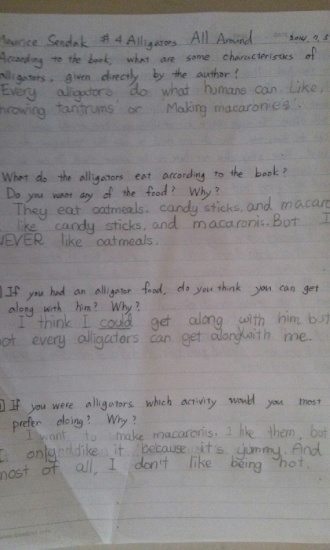 Maurice Sendak #4 Alligators All Around 2014. 9. 5
According to the book, what are some characteristics of
alligators, given directly by the author?
Every alligators do what humans can. Like
throwing tantrums or Making macaronies.
What do the alligators eat according to the book?
Do you want any of the food? Why?
They eat oatmeals. candy sticks, and macaro
like candy sticks, and macaronis. But I
NEVER like oatmeals.
If you had an alligator food, do you think you can get
along with him? Why?
I think I could get along with him but
not every alligators can get alongwith me.
If you were alligators which activity would you most
prefer doing? Why?
I want to make macaronis. I like them, but
I only like it because it's yummy. And
most of all, I don't like being hot.